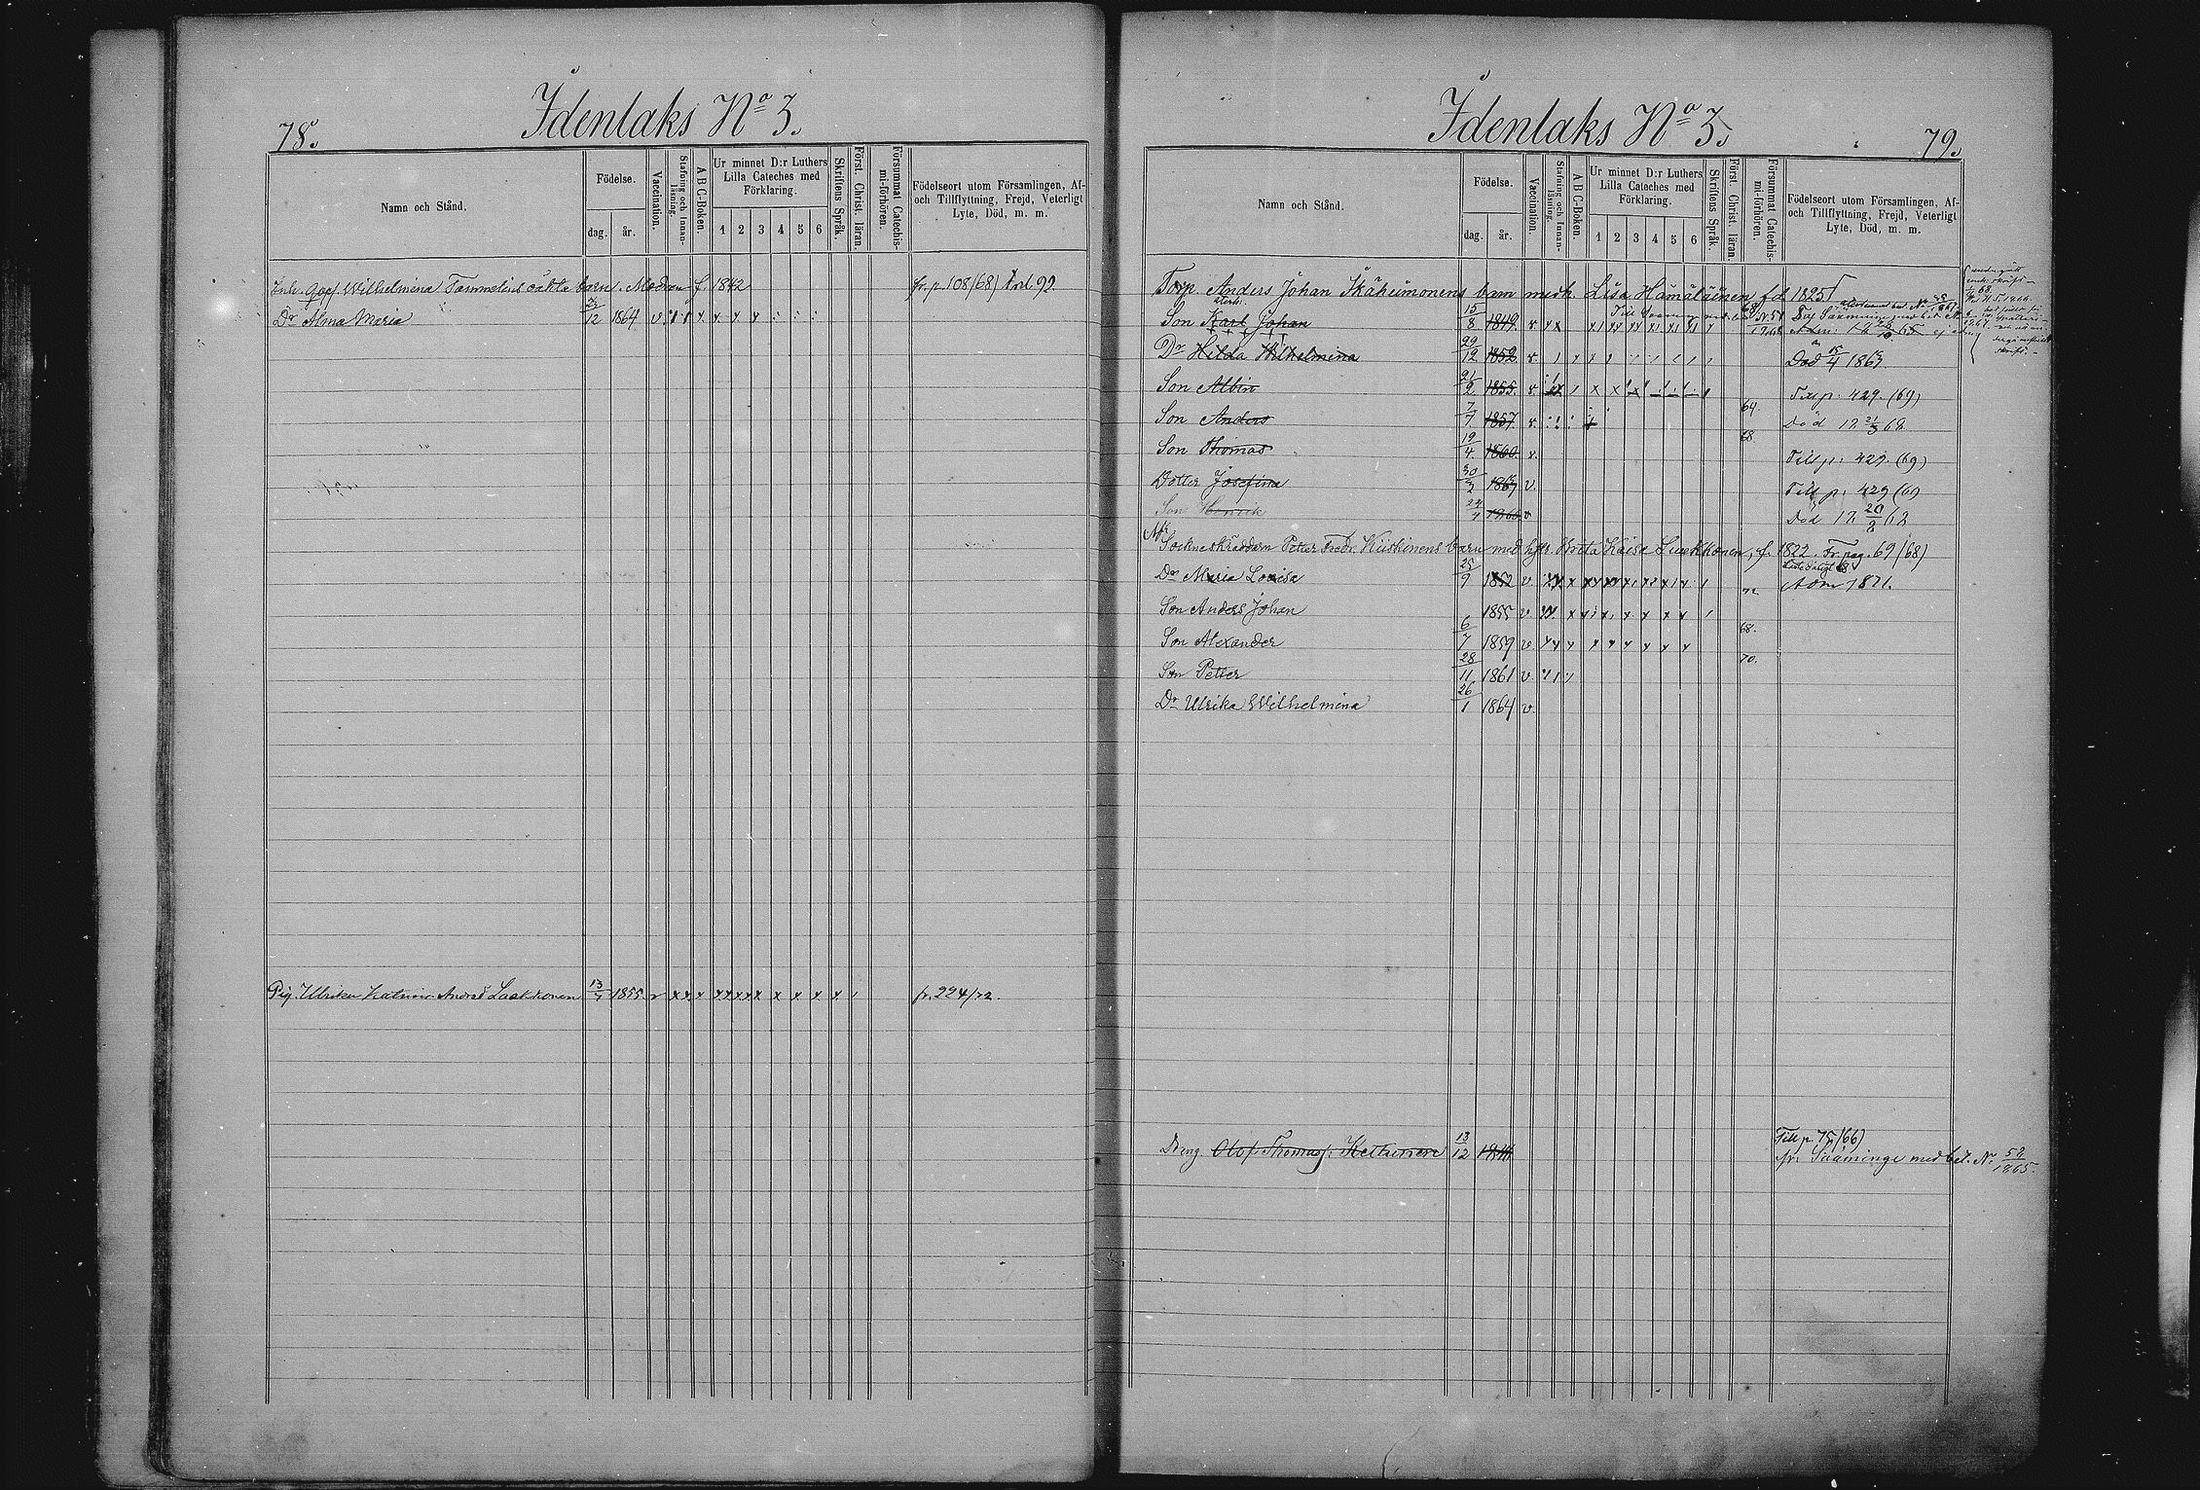 78.
Idenlaks No 3.
Namn och Stånd.
Födelse.
dag. år.
Vaccination.
Stafning och Innanläsning.
A B C-Boken.
Ur minnet D:r Luthers
Lilla Cateches med
Förklaring.
1 2 3 4 5 6
Skriftens Språk.
Först. Christ. läran.
Försummat Catechismi-förhören.
Födelseort utom Församlingen, Af-
och Tillflyttning, Frejd, Veterligt
Lyte, Död, m. m.
Wilhelmina Tammelins oäkta barn. Modren f. 1842 fr. p. 108 (68)
Dr Alma Maria 12 1864 v.
Pig. Ulrika Katrina Andersd Laakkonen 13 1855 v fr. 224/72.
Idenlaks No 3.
79.
Namn och Stånd.
Födelse.
dag. år.
Vaccination.
Stafning och Innanläsning.
A B C-Boken.
Ur minnet D:r Luthers
Lilla Cateches med
Förklaring.
1 2 3 4 5 6
Skriftens Språk.
Först. Christ. läran.
Försummat Catechismi-förhören.
Födelseort utom Församlingen, Af-
och Tillflyttning, Frejd, Veterligt
Lyte, Död, m. m.
Torp. Anders Johan Ikäheimonens barn med h. Lisa Hämäläinen f.d. 1825
Son Karl Johan 15/8 1849 v
Dr Hilda Wilhelmina 29/12 1852 v. Död 15/4 1863
Son Albin 21/2 1855. v. Till p. 429. (69)
Son Anders 7/7 1857 v 64. Död 68
Son Thomas 19/4. 1860. v. 68 Till p. 429. (69)
Dotter Josefina 30 1863 v. Till p. 429 (69
Son Henrik 24/4 1866 v Död 20/2 68
Sockneskräddarn Petter Fredr. Kiiskinens barn med hstr. Brita Kaisa Luukkonen, f. 1822. Fr. pag. 69 (68)
Dr Maria Lovisa 25/9 1852 v. 72 Adm 1871.
Son Anders Johan 1855 v.
Son Alexander 6/7 1859 v. 68.
Son Petter 28/11 1861 v. 70.
Dr Ulrika Wilhelmina 26/1 1864 v.
Till p. 75 (66)
Dreng Olof Thomasf. Kettunen 13/12 fr. Sääminge med bet. No 52/1865.